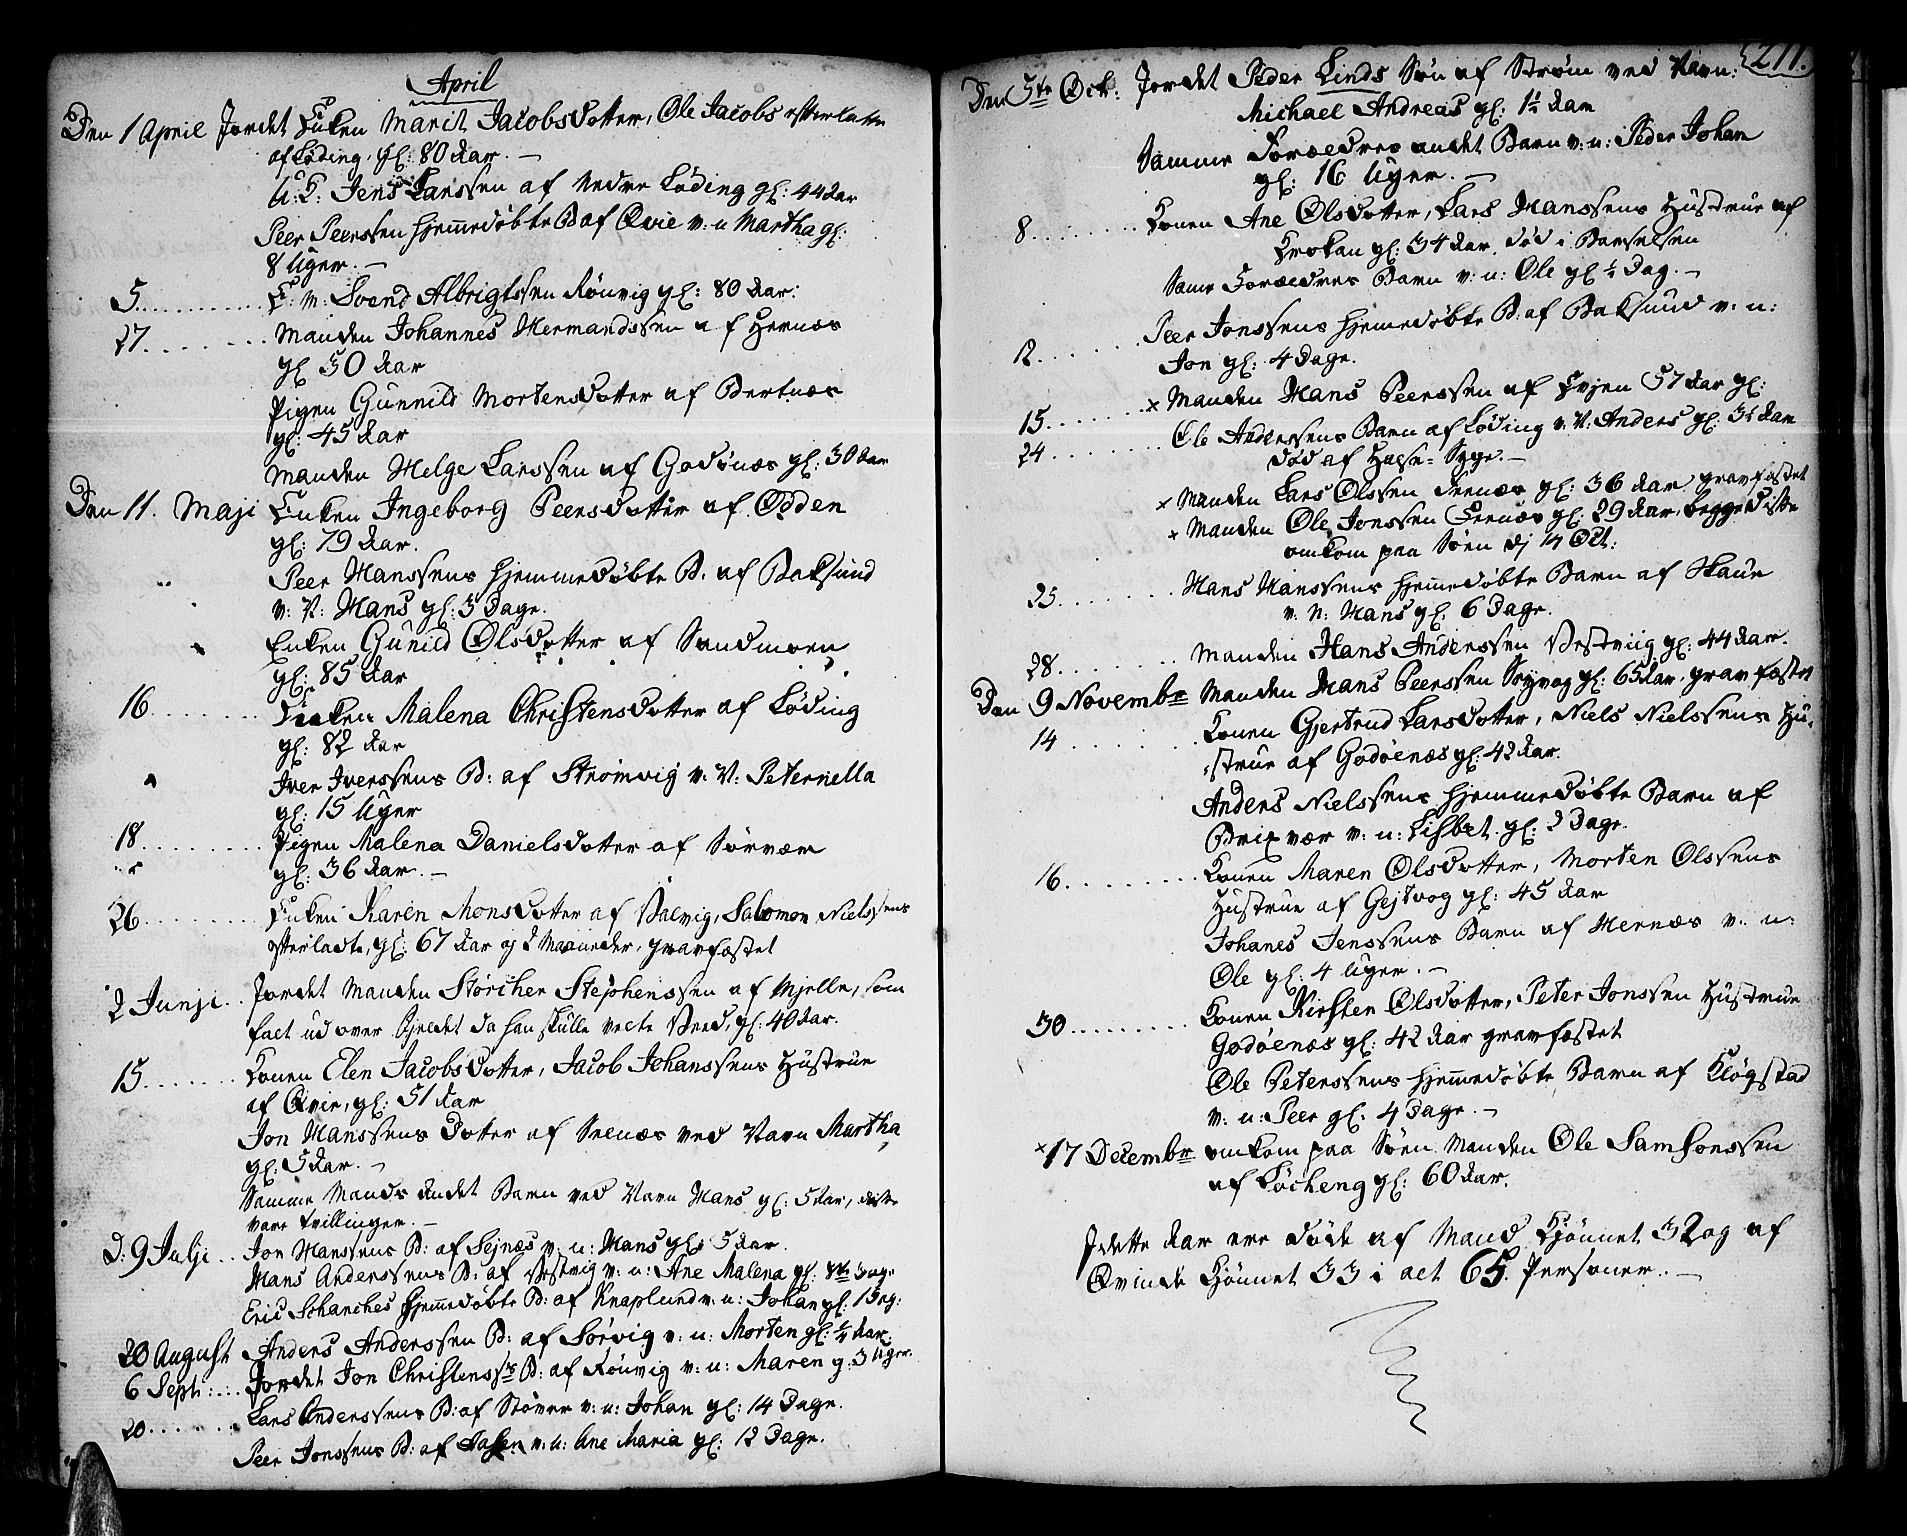 April
Den 1 April Jordet Enken Marit Jacobsdotter, Ole Jacobs efterladte
af Løding, gl: 80 Aar. —
U: K: Jens Larssen af Nedre Løding gl: 44 Aar
Peer Peerssen hjemmedøbte B af Qvie v: n Martha gl:
8 Uger. —
5. G: M: Svend Albrigtssen Rönvig gl: 80 Aar:
27. Manden Johannes Hermandssen af Hernæs
gl 50 Aar
Pigen Gunnild Mortensdotter af Bertnæs
gl: 45 Aar
Manden Helge Larssen af Godönæs gl: 30 Aar
Den 11. Maji Enken Ingeborg Peersdotter af Odden
gl: 79 Aar.
Peer Hanssens hjemmedøbte B. af Baksund
v: N: Hans gl: 3 Dage.
Enken Gunild Olsdotter af Sandmoen
gl: 85 Aar
16. Enken Malena Christensdotter af Løding
gl: 82 Aar
Iver Iverssens B: af Strømvig v: N: Peternella
gl: 15 Uger
18. Pigen Malena Danielsdotter af Sörvær
gl: 36 Aar. —
26. Enken Karen Monsdotter af Valvig, Salomon Nielssens
efterladte, gl: 67 Aar og 2 Maaneder, gravfæstet
2 Junji. Jordet Manden Störcher Stephenssen af Mjelle, som
falt ud over Fjeldet da han skulle veete Veed, gl: 40 Aar.
15. Konen Elen Jacobsdotter, Jacob Johanssens Hustrue
af Qvie, gl: 51 Aar
Jon Hanssens Dotter af Seenæs ved Navn Martha
gl: 5 Aar. —
Samme Mands Andet Barn ved Navn Hans gl: 5 Aar, disse
vare tvillinger. —
D: 9 Julji. Jon Hanssens B: af Sejnæs v: n: Hans gl: 5 Aar.
Hans Anderssens B: af Vestvig v: n: Ane Malena gl: Dage
Eric Schanches hjemmedøbte B: af Knaplund v: n: Johan gl: 1 Dag:
20 August Anders Anderssen B: af Sörvig v: n: Morten gl: ¼ Aar.
6 Sept: Jordet Jon Christenss: B: af Rönvig v: n: Maren g: 3 Uger.
20. Lars Anderssens B: af Støver v: n: Johan gl: 14 Dage.
Peer Jonssens B: af v: n: Ane Maria gl: 12 Dage.
211.
Den 5te Oct: Jordet Peder Linds Søn af Strøm ved Navn:
Michael Andreas gl: 1½ Aar
Samme Forældres andet Barn v: n: Peder Johan
gl: 16 Uger. —
8. Konen Ane Olsdotter, Lars Hanssens Hustrue af
Krokan gl: 34 Aar. død i Barselsen
Same Forældres Barn v: n: Ole gl ½ Dag. —
12. Peer Jonssens hjemmedøbte B: af Baksund v: n:
Jon gl: 4 Dage.
15. × Manden Hans Peerssen af Evjen 57 Aar gl:
24. Ole Anderssens Barn af Løding v: N: Anders gl: 3½ Aar
død af Halse-Syge. —
× Manden Lars Olssen Seenæs gl: 36 Aar gravfæstet
× Manden Ole Jonssen Seenæs gl. 29 Aar, begge disse
omkom paa Søen dj 14 Oct:
25. Hans Hanssens hjemmedøbte Barn af Skaue
v: N: Hans gl: 6 Dage.
28. Manden Hans Anderssen Vestviig gl: 44 Aar.
Den 9 Novembr Manden Hans Peerssen Seyvog gl: 65 Aar, gravfæstet
14. Konen Gjertrud Larsdotter, Niels Nielssens Hu-
strue af Godöenæs gl: 42 Aar.
Anders Nielssens hjemmedøbte Barn af
Brixvær v: n: Lisbet gl: 3 Dage.
16. Konen Maren Olsdotter, Morten Olssens
Hustrue af Gejtvog gl: 45 Aar
Johanes Jenssens Barn af Hernæs v: n:
Ole gl: 4 Uger. —
30. Konen Kirsten Olsdotter, Peter Jonssen Hustrue
Godöenæs gl: 42 Aar gravfæstet
Ole Peterssens hjemmedøbte Barn af Kløgstad
v: n: Peer gl: 4 Dage. —
× 17 Decembr omkom paa Søen Manden Ole Samsonssen
af Løcheng gl: 60 Aar.
I dette Aar ere døde af Mand Kjönnet 32 og af
Qvinde Kjönnet 33 i alt 65. Personer. —